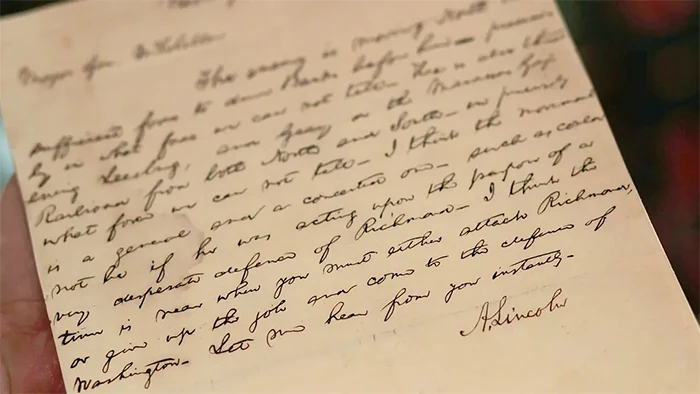 Major Gen. McClellan
The enemy is moving North in
sufficient force to drive Banks before him— precise
ly in what force we can not tell— He is also threat
ening Leesburg, and Geary on the Manassas Gap
Railroad from both North and South— in precisely
what force we can not tell— I think the movement
is a general and a concerted one— such as could
not be if he was acting upon the purpose of a
very desperate defence of Richmond— I think the
time is near when you must either attack Richmond,
or give up the job and come to the defence of
Washington— Let me hear from you instantly—
A. Lincoln